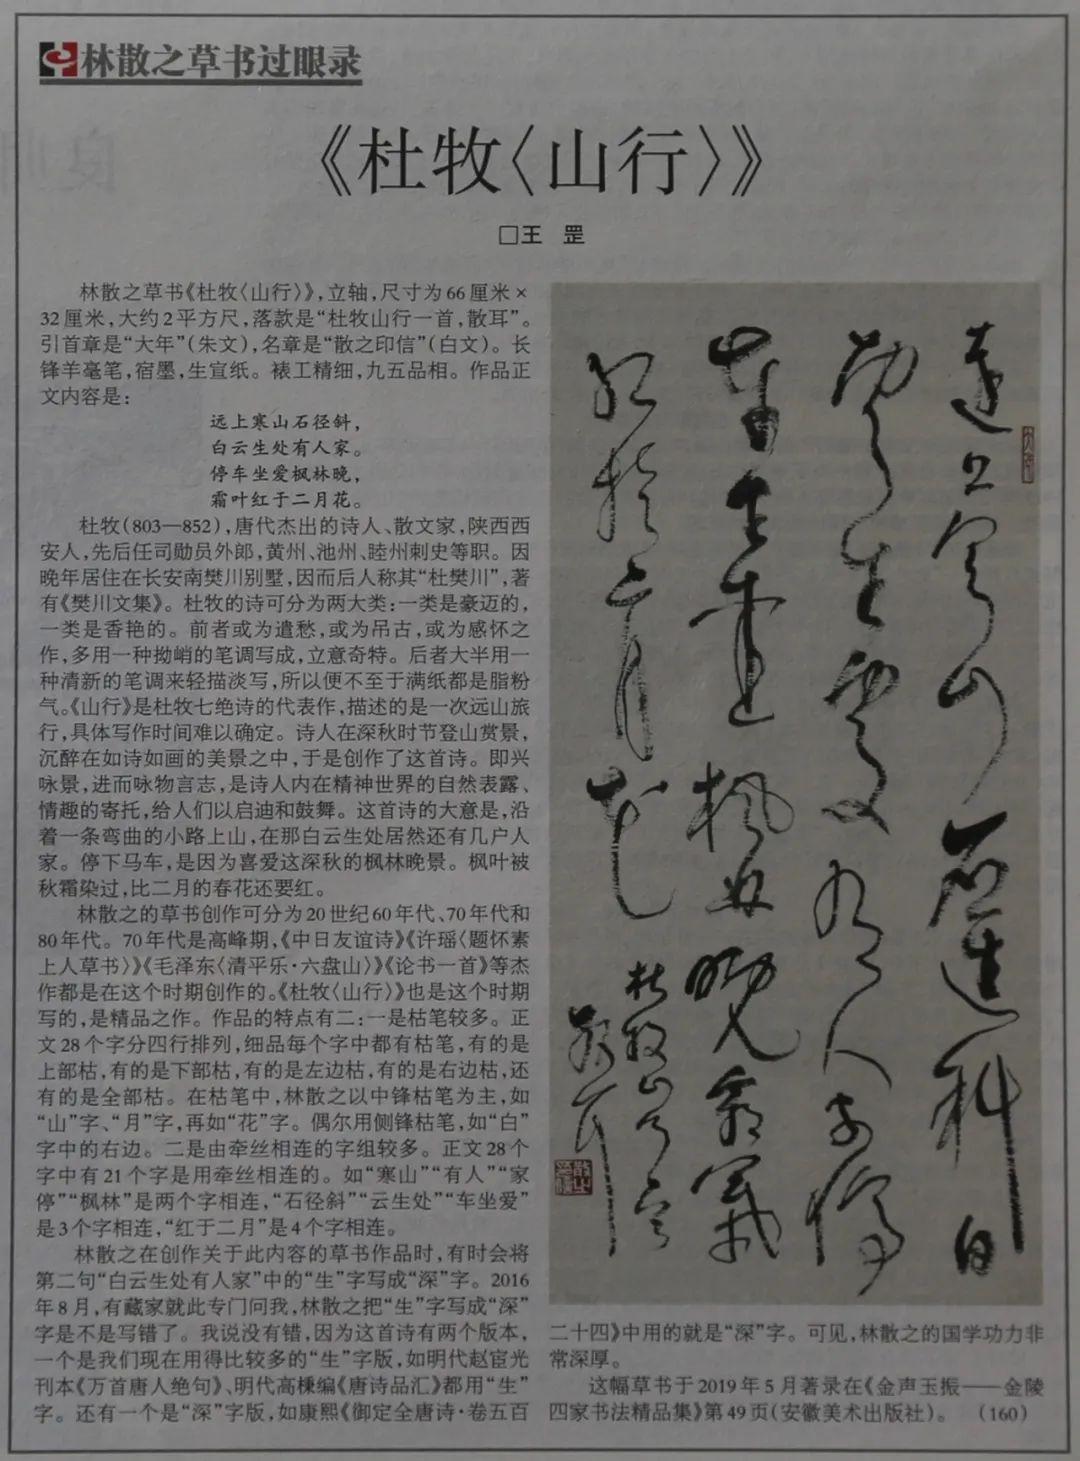 林散之草书过眼录
《杜牧〈山行〉》
□王 罡
林散之草书《杜牧〈山行〉》,立轴,尺寸为66厘米×
32厘米,大约2平方尺,落款是“杜牧山行一首,散耳”。
引首章是“大年”(朱文),名章是“散之印信”(白文)。长
锋羊毫笔,宿墨,生宣纸。裱工精细,九五品相。作品正
文内容是:
远上寒山石径斜,
白云生处有人家。
停车坐爱枫林晚,
霜叶红于二月花。
杜牧(803—852),唐代杰出的诗人、散文家,陕西西
安人,先后任司勋员外郎,黄州、池州、睦州刺史等职。因
晚年居住在长安南樊川别墅,因而后人称其“杜樊川”,著
有《樊川文集》。杜牧的诗可分为两大类:一类是豪迈的,
一类是香艳的。前者或为遣愁,或为吊古,或为感怀之
作,多用一种拗峭的笔调写成,立意奇特。后者大半用一
种清新的笔调来轻描淡写,所以便不至于满纸都是脂粉
气。《山行》是杜牧七绝诗的代表作,描述的是一次远山旅
行,具体写作时间难以确定。诗人在深秋时节登山赏景,
沉醉在如诗如画的美景之中,于是创作了这首诗。即兴
咏景,进而咏物言志,是诗人内在精神世界的自然表露、
情趣的寄托,给人们以启迪和鼓舞。这首诗的大意是,沿
着一条弯曲的小路上山,在那白云生处居然还有几户人
家。停下马车,是因为喜爱这深秋的枫林晚景。枫叶被
秋霜染过,比二月的春花还要红。
林散之的草书创作可分为20世纪60年代、70年代和
80年代。70年代是高峰期,《中日友谊诗》《许瑶〈题怀素
上人草书〉》《毛泽东〈清平乐·六盘山〉》《论书一首》等杰
作都是在这个时期创作的。《杜牧〈山行〉》也是这个时期
写的,是精品之作。作品的特点有二:一是枯笔较多。正
文28个字分四行排列,细品每个字中都有枯笔,有的是
上部枯,有的是下部枯,有的是左边枯,有的是右边枯,还
有的是全部枯。在枯笔中,林散之以中锋枯笔为主,如
“山”字、“月”字,再如“花”字。偶尔用侧锋枯笔,如“白”
字中的右边。二是由牵丝相连的字组较多。正文28个
字中有21个字是用牵丝相连的。如“寒山”“有人”“家
停”“枫林”是两个字相连,“石径斜”“云生处”“车坐爱”
是3个字相连,“红于二月”是4个字相连。
林散之在创作关于此内容的草书作品时,有时会将
第二句“白云生处有人家”中的“生”字写成“深”字。2016
年8月,有藏家就此专门问我,林散之把“生”字写成“深”
字是不是写错了。我说没有错,因为这首诗有两个版本,
一个是我们现在用得比较多的“生”字版,如明代赵宧光
刊本《万首唐人绝句》、明代高棅编《唐诗品汇》都用“生”
字。还有一个是“深”字版,如康熙《御定全唐诗·卷五百
二十四》中用的就是“深”字。可见,林散之的国学功力非
常深厚。
这幅草书于2019年5月著录在《金声玉振——金陵
四家书法精品集》第49页(安徽美术出版社)。 (160)
远上寒山石径斜白
云生处有人家停
车坐爱枫林晚霜叶
红于二月花
杜牧山行一首
散耳
大年
散之印信